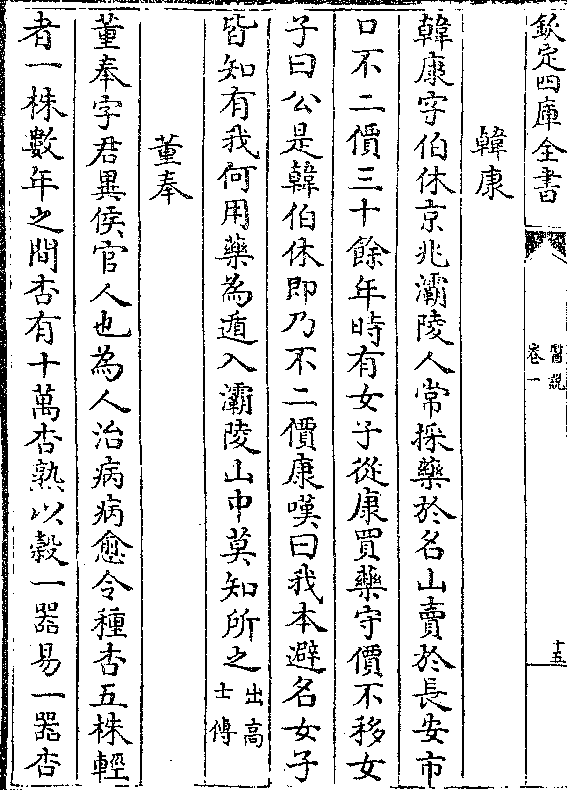 欽定四庫全書
醫説
卷一
十五
韓康
韓康字伯休京兆灞陵人常採藥於名山賣於長安市
口不二價三十餘年時有女子從康買藥守價不移女
子曰公是韓伯休即乃不二價康嘆曰我本避名女子
皆知有我何用藥為遁入灞陵山中莫知所之出高士傳
董奉
董奉字君異侯官人也為人治病病愈令種杏五株輕
者一株數年之間杏有十萬杏熟以穀一器易一器杏